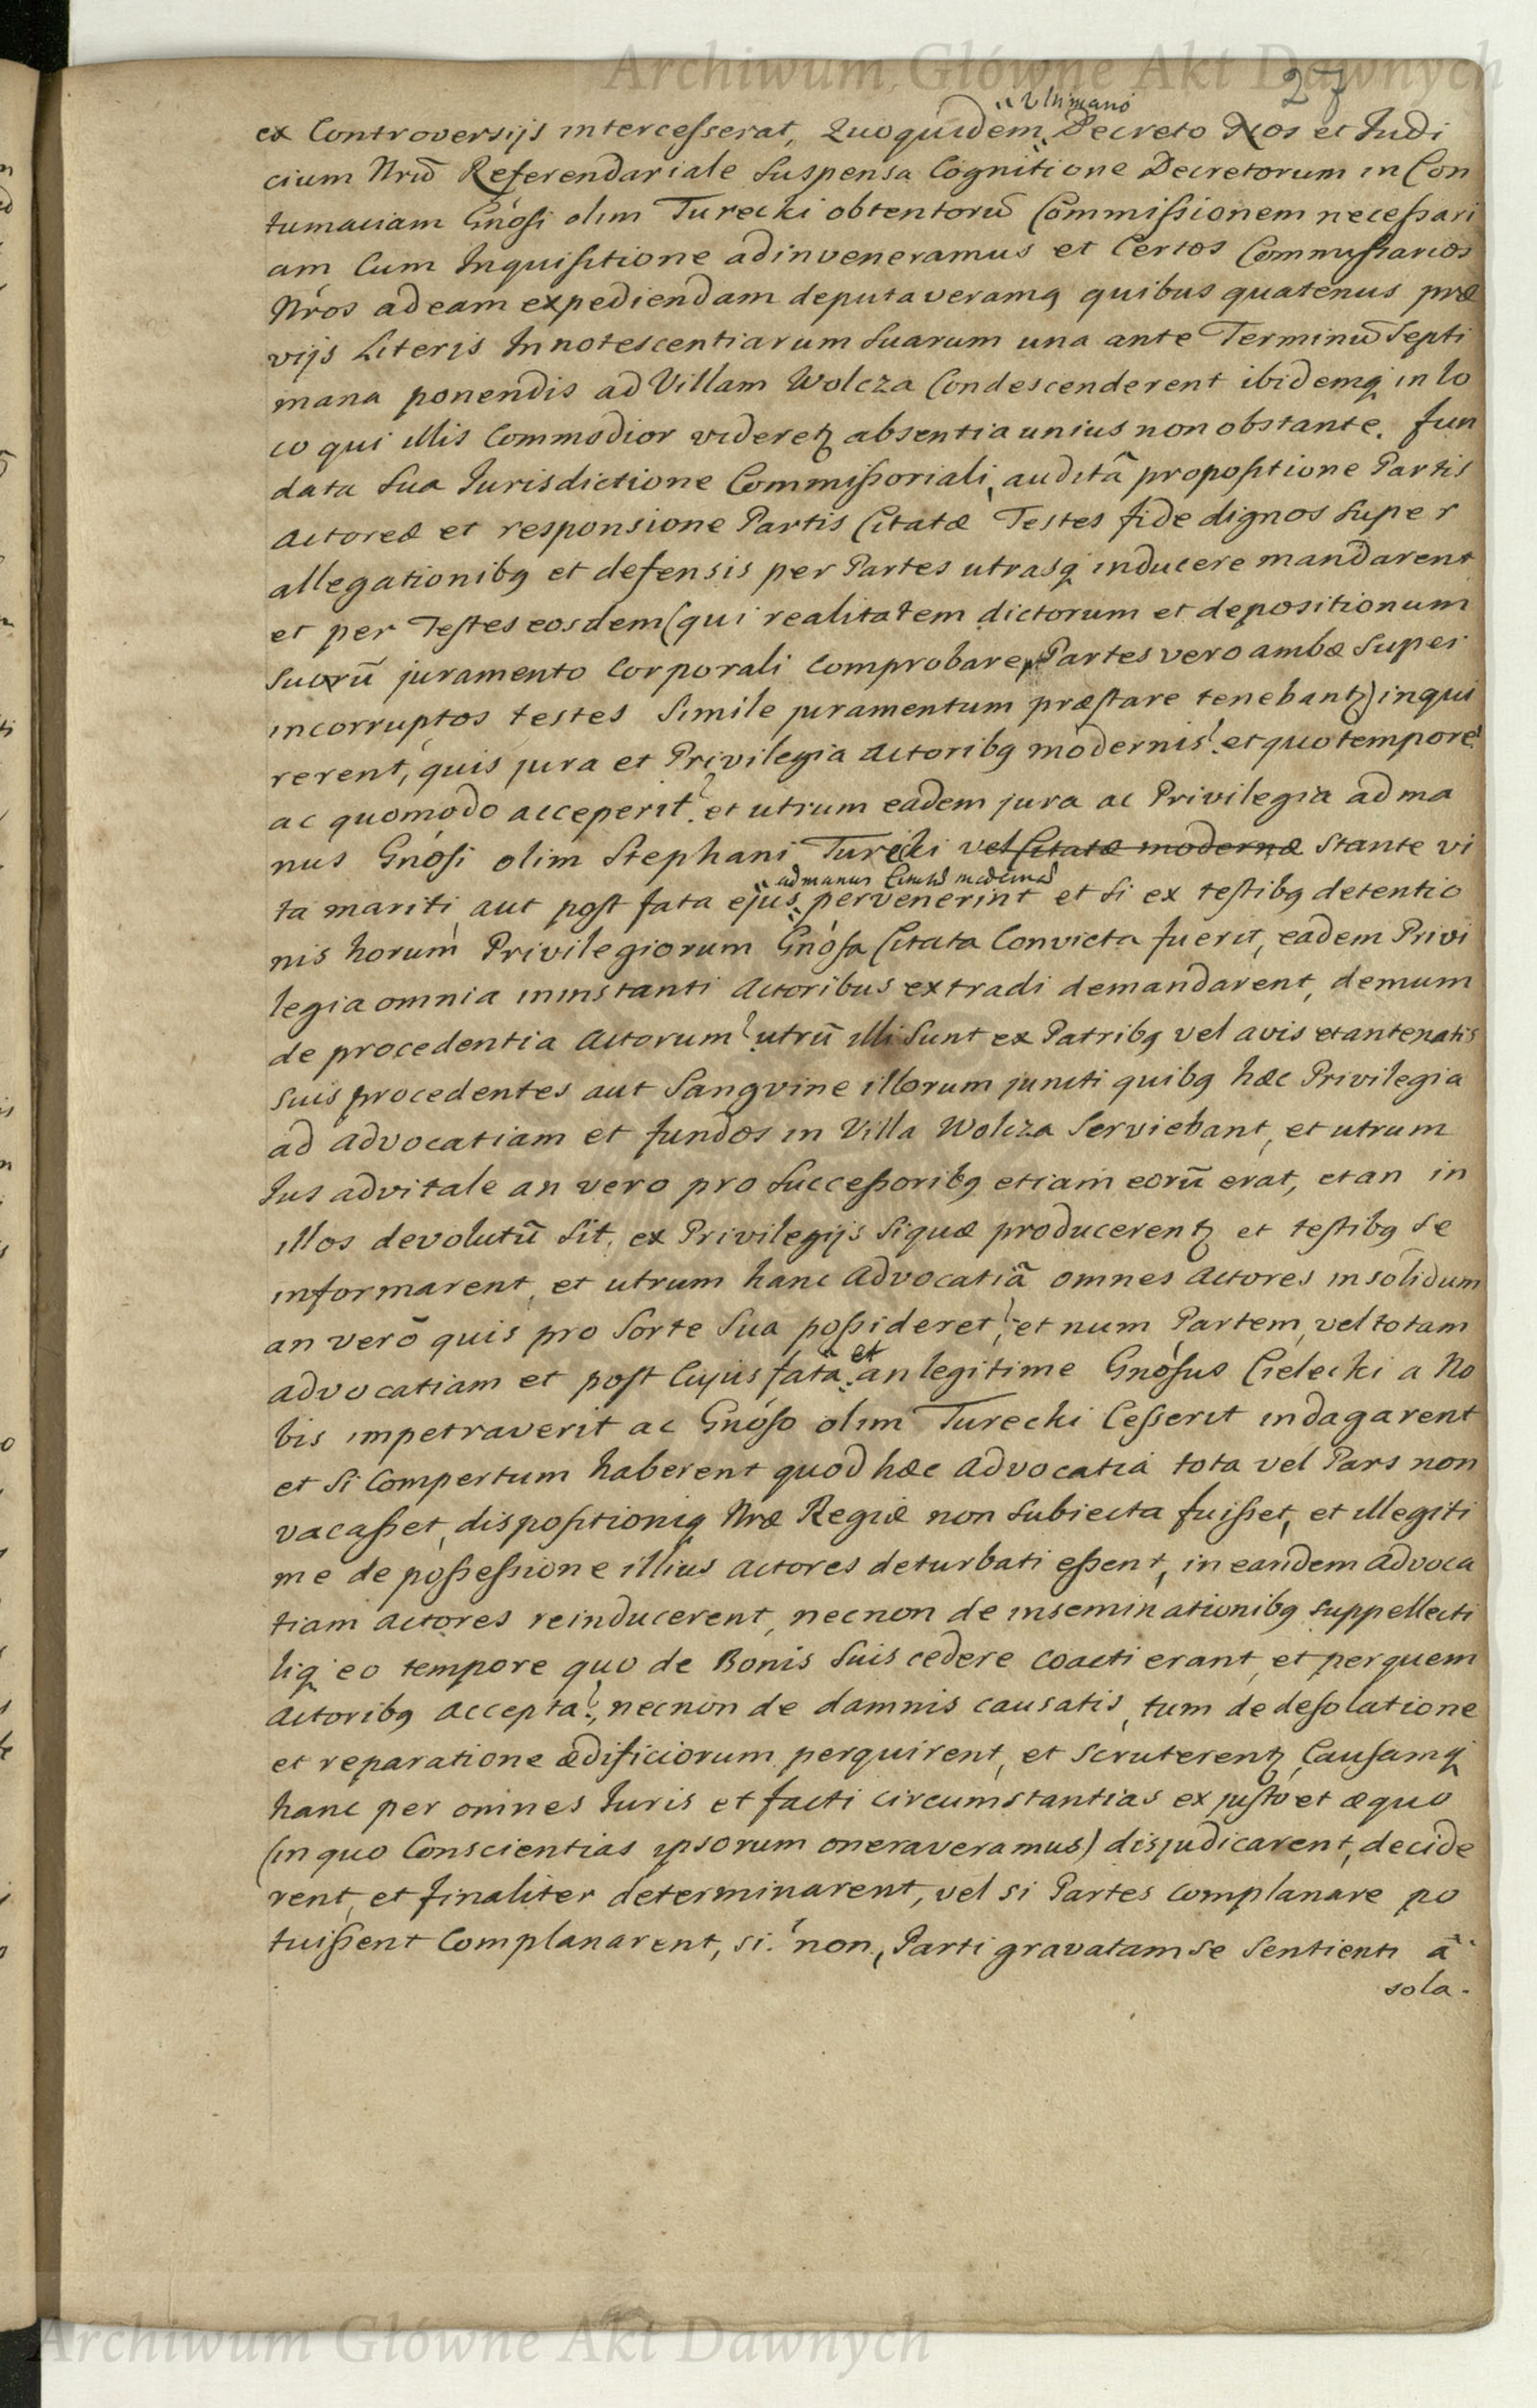 Archiwum Główne Akt Dawnych
27
Ultimario
ex Controversijs intercesserat, Quoquidem Decreto Nos et Judi
cium Nrũ Referendariale Suspensa Cognitione Decretorum in Con
tumaciam Gnosi olim Turecki obtentorũ Commissionem necessari
am Cum Inquisitione adinveneramus et Certos Commissarios
Nros adeam expediendam deputaveramq quibus quatenus præ
vijs Literis Innotescentiarum Suarum una ante Terminũ Septi
mana ponendis ad Villam Wolcza Condescenderent ibidemq in lo
co qui illis Commodior videretz absentia unius non obstante. Fun
data Sua Jurisdictione Commissoriali, auditâ propositione Partis
Actoreæ et responsione Partis Citatæ Testes fide dignos Super
allegationibq et defensis per Partes utrasq inducere mandarent
et per Testes eosdem (qui realitatem dictorum et depositionum
Suorũ juramento Corporali Comprobare, Partes vero ambæ Super
incorruptos testes Simile juramentum præstare tenebantz) inqui
rerent, quis jura et Privilegia Actoribq modernis? et quo tempore?
ac quomodo acceperit? et utrum eadem jura ac Privilegia ad ma
nus Gnosi olim Stephani Turecki vel Citatæ modernæ Stante vi
ad manus Citatæ modernæ
ta mariti aut post fata ejus pervenerint et Si ex testibq detentio
nis horum Privilegiorum Gnosa Citata Convicta fuerit, eadem Privi
legia omnia ininstanti Actoribus extradi demandarent, demum
de procedentia Actorum? utrũ illi Sunt ex Patribq vel avis et antenatis
suis procedentes aut Sangvine illorum juncti quibq hæc Privilegia
ad Advocatiam et fundos in Villa Wolcza Serviebant, et utrum
Jus advitale an vero pro Successoribq etiam eorũ erat, et an in
illos devolutũ Sit, ex Privilegijs Siquæ producerentz et testibq Se
informarent, et utrum hanc Advocatiã omnes Actores in solidum
an verò quis pro Sorte Sua possideret?, et num Partem, vel totam
et
advocatiam et post Cujus fata an legitime Gnosus Cielecki a No
bis impetraverit ac Gnoso olim Turecki Cesserit indagarent
et Si Compertum haberent quod hæc Advocatia tota vel Pars non
vacasset, dispositioniq Nræ Regiæ non Subiecta fuisset, et illegiti
me de possessione illius Actores deturbati essent, in eandem Advoca
tiam Actores reinducerent, necnon de inseminationibq Suppellecti
liq eo tempore quo de Bonis Suis cedere coacti erant, et per quem
Actoribq accepta?, necnon de damnis causatis, tum de desolatione
et reparatione ædificiorum perquirent, et scruterentz, Causamq
hanc per omnes Juris et facti circumstantias ex justo et æquo
(in quo Conscientias ipsorum oneraveramus) disjudicarent, decide
rent, et finaliter determinarent, vel si Partes complanare po
tuissent Complanarent, si non, Parti gravatam Se Sentienti â
sola.
Archiwum Główne Akt Dawnych